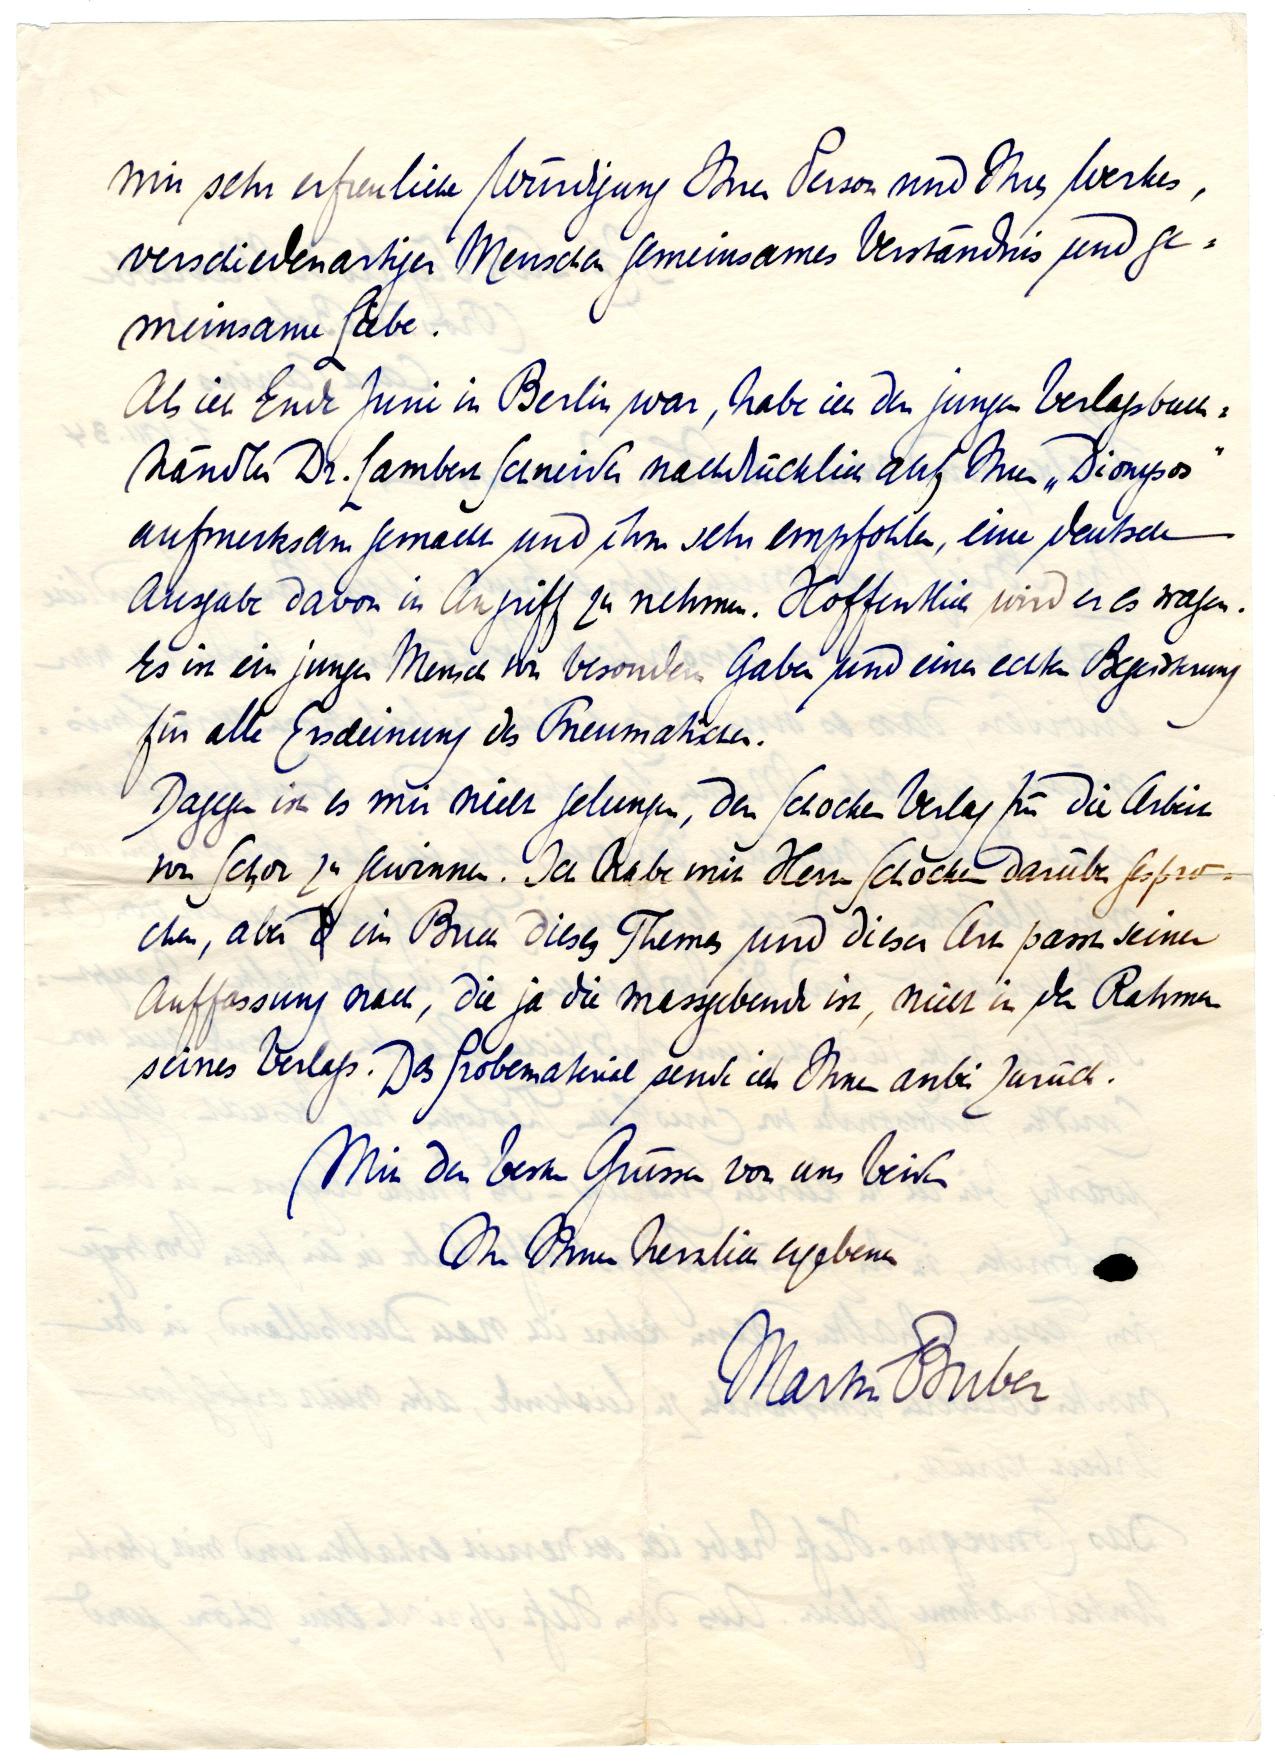 mir sehr erfreuliche Würdigung Ihrer Person und Ihres Werkes,
verschiedenartiger Menschen gemeinsames Verständnis und ge-
meinsame Liebe.
Als ich Ende Juni in Berlin war, habe ich den jungen Verlagsbuch-
händler Dr. Lambert Schneider nachdrücklich auf Ihren „Dionysos"
aufmerksam gemacht und ihm sehr empfohlen, eine deutsche
Ausgabe davon in Angriff zu nehmen. Hoffentlich wird er es wagen.
Es ist ein junger Mensch von besondern Gaben und einer echten Begeisterung
für alle Erscheinung des Pneumatischen.
Dagegen ist es mir nicht gelungen, den Schocken Verlag für die Arbeit
von Schor zu gewinnen. Ich habe mit Herrn Schocken darüber gespro-
chen, aber ein Buch dieses Themas und dieser Art passt seiner
Auffassung nach, die ja die massgebende ist, nicht in den Rahmen
seines Verlags. Das Probematerial sende ich Ihnen anbei zurück.
Mit den besten Grüssen von uns beiden
Ihr Ihnen herzlich ergebener
Martin Buber